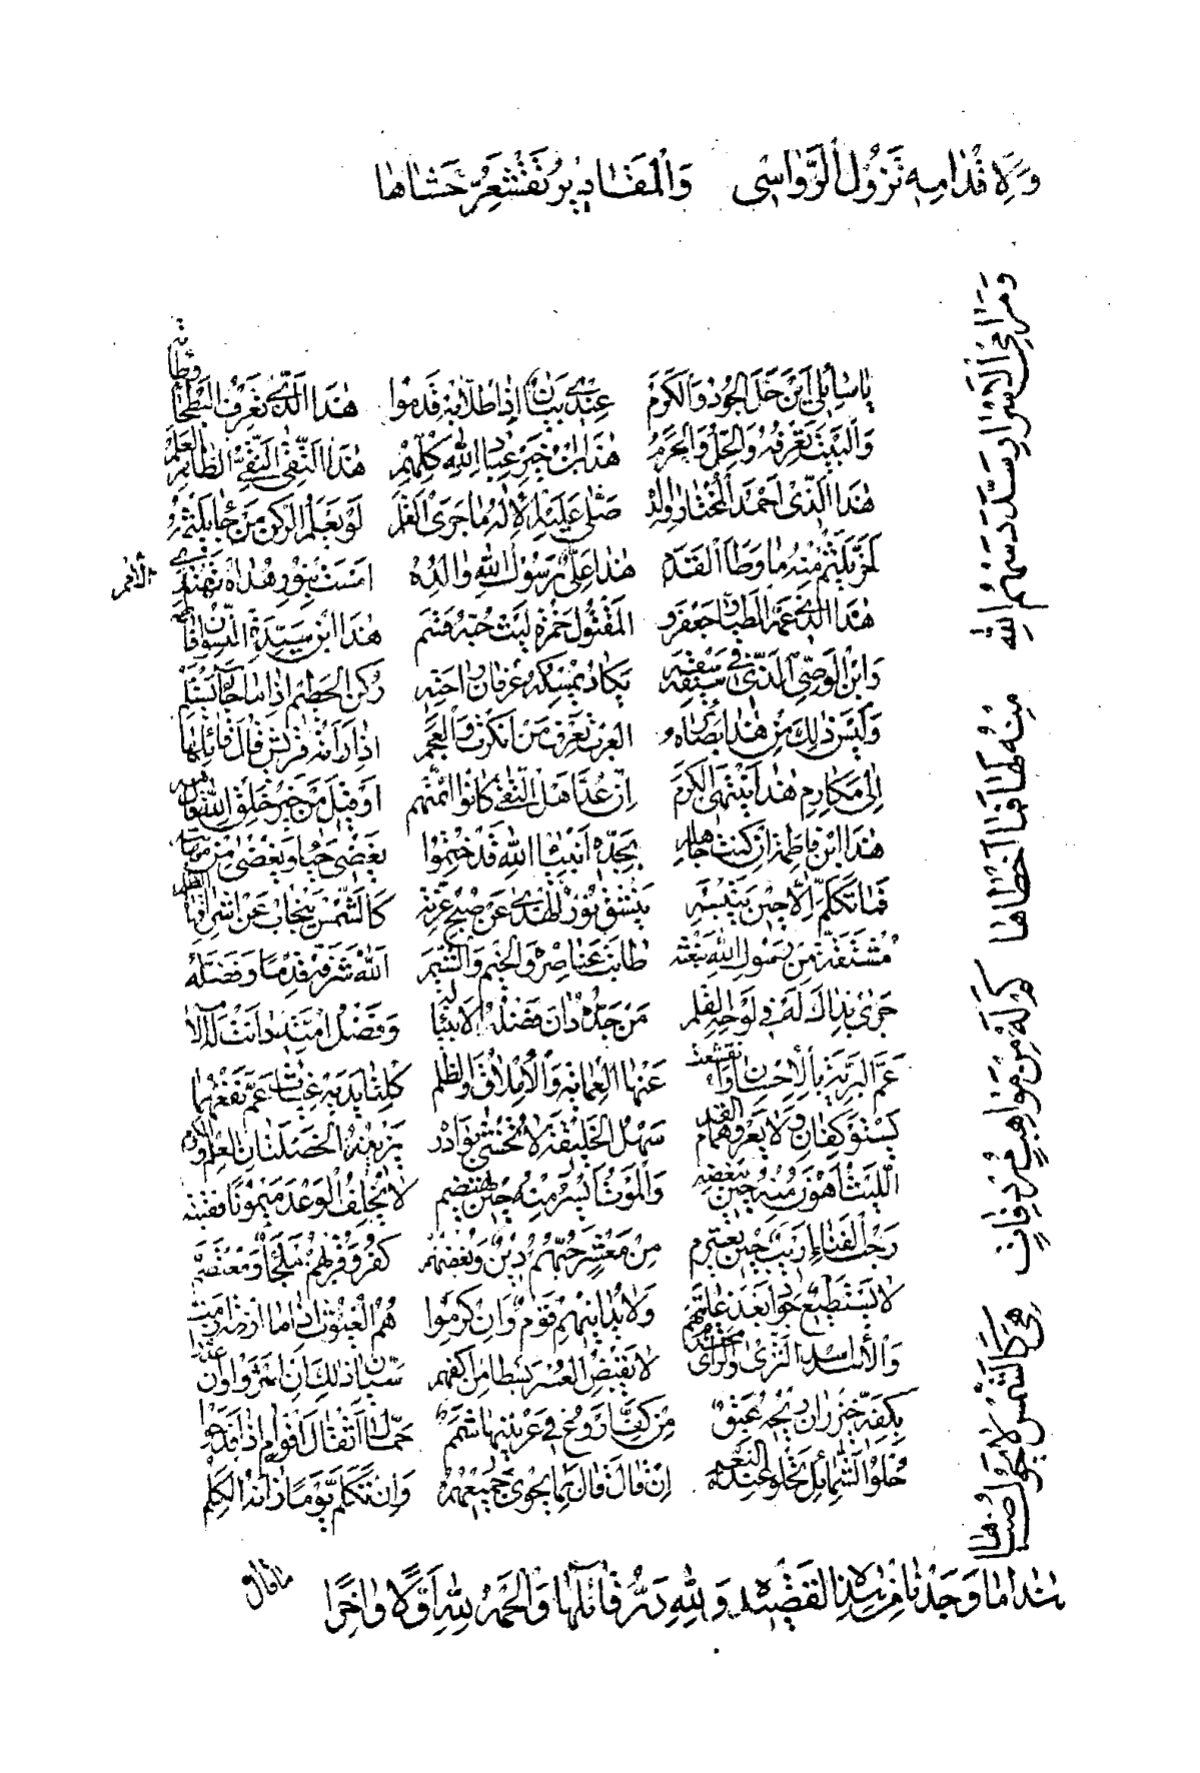 وَلِاقْدامِهِ تَزُولُ الرَّواسِي وَالْمَقَاديرُ تَقْشَعِرُّ حَشاها
وَمَرامِي الْأَسْرارِ سَدَّدَ سَهْمُ اللهِ مِنْهُ لَها فَما أَخْطاها كَمْ لَهُ مِنْ مَواهِبٍ مُرْدِفاتٍ هِيَ كَالشَّمْسِ لَا يَحُولُ ضُحاها
يا سائِلي أَيْنَ حَلَّ الْجُودُ وَالْكَرَمُ عِنْدي بَيانٌ إِذا طُلّابُهُ قَدِمُوا هٰذَا الَّذي تَعْرِفُ الْبَطْحا وَطْأَتَهُ
وَالْبَيْتُ يَعْرِفُهُ وَالْحِلُّ وَالْحَرَمُ هٰذَا ابْنُ خَيْرِ عِبادِ اللهِ كُلِّهِمُ هٰذَا التَّقِيُّ النَّقِيُّ الطّاهِرُ الْعَلَمُ
هٰذَا الَّذي أَحْمَدُ الْمُخْتارُ والِدُهُ صَلّى عَلَيْهِ الْإِلٰهُ ما جَرَى الْقَلَمُ لَوْ يَعْلَمُ الرُّكْنُ مَنْ جا يَلْثِمُهُ
لَخَرَّ يَلْثِمُ مِنْهُ ما وَطَأَ الْقَدَمُ هٰذا عَلِيٌّ رَسُولُ اللهِ والِدُهُ أَمْسَتْ بِنُورِ هُداهُ تَهْتَدي الْأُمَمُ
هٰذَا الَّذي عَمُّهُ الطَّيّارُ جَعْفَرُ وَ الْمَقْتُولُ حَمْزَةُ لَيْثٌ حُبُّهُ قَسَمُ هٰذَا ابْنُ سَيِّدَةِ النِّسْوانِ فاطِمَةٍ
وَابْنُ الْوَصِيِّ الَّذي في سَيْفِهِ نِقَمُ يَكادُ يُمْسِكُهُ عِرْفانَ راحَتِهِ رُكْنُ الْحَطيمِ إِذا ما جاءَ يَسْتَلِمُ
وَلَيْسَ ذٰلِكَ مِنْ هٰذا بِضائِرِهِ الْعُرْبُ تَعْرِفُ مَنْ أَنْكَرْتَ وَالْعَجَمُ إِذا رَأَتْهُ قُرَيْشٌ قالَ قائِلُها
إِلى مَكارِمِ هٰذا يَنْتَهِي الْكَرَمُ إِنْ عُدَّ أَهْلُ التُّقى كانُوا أَئِمَّتَهُمْ أَوْ قيلَ مَنْ خَيْرُ خَلْقِ اللهِ
هٰذَا ابْنُ فاطِمَةٍ إِنْ كُنْتَ جاهِلَهُ بِجَدِّهِ أَنْبِيآءُ اللهِ قَدْ خُتِمُوا يُغْضي حَياءً وَيُغْضى مِنْ مَهابَتِهِ
فَما تَكَلَّمَ إِلّا حينَ يَبْتَسِمُ يَنْشَقُّ نُورُ الْهُدى عَنْ صُبْحِ غُرَّتِهِ كَالشَّمْسِ يَنْجابُ عَنْ إِشْراقِهَا الظُّلَمُ
مُشْتَقَّةٌ مِنْ رَسُولِ اللهِ نَبْعَتُهُ طابَتْ عَناصِرُهُ وَالْخيمُ وَالشِّيَمُ اللهُ شَرَّفَهُ قِدْماً وَفَضَّلَهُ
جَرى بِذاكَ لَهُ في لَوْحِهِ الْقَلَمُ مَنْ جَدُّهُ دانَ فَضْلُ الْأَنْبِيا لَهُ وَفَضْلُ أُمَّتِهِ دانَتْ لَهُ الْأُمَمُ
عَمَّ الْبَرِيَّةَ بِالْإِحْسانِ وَانْقَشَعَتْ عَنْهَا الْعَمايَةُ وَالْإِمْلاقُ وَالظُّلَمُ كِلْتا يَدَيْهِ غِياثٌ عَمَّ نَفْعُهُما
يَسْتَوْكِفانِ وَلا يَعْرُوهُمَا الْعَدَمُ سَهْلُ الْخَليقَةِ لا تُخْشى بَوادِرُهُ يَزينُهُ الْخَصْلَتانِ الْحِلْمُ وَالْكَرَمُ
اللَّيْثُ أَهْوَنُ مِنْهُ حينَ تُغْضِبُهُ وَالْمَوْتُ أَيْسَرُ مِنْهُ حينَ يُهْتَضَمُ لا يُخْلِفُ الْوَعْدَ مَيْمُوناً نَقيبَتُهُ
رَحْبُ الْفَناءِ أَريبٌ حينَ يَعْتَزِمُ مِنْ مَعْشَرٍ حُبُّهُمْ دينٌ وَبُغْضُهُمُ كُفْرٌ وَقُرْبُهُمُ مَلْجاً وَمُعْتَصَمُ
لا يَسْتَطيعُ جَوادٌ بُعْدَ غايَتِهِمْ وَلا يُدانيهِمُ قَوْمٌ وَإِنْ كَرُمُوا هُمُ الْغُيُوثُ إِذا ما أَزْمَةٌ أَزَمَتْ
وَالْأُسْدُ أُسْدُ الشَّرى وَالرَّأْيُ مُحْتَدِمُ لا يَقْبِضُ الْعُسْرُ بَسْطاً مِنْ أَكُفِّهِمُ سِيّانِ ذٰلِكَ إِنْ أَثْرَوْا وَإِنْ عَدِمُوا
بِكَفِّهِ خَيْزُرانٌ ريحُهُ عَبِقٌ مِنْ كَفِّ أَرْوَعَ في عِرْنينِهِ شَمَمُ حَمّالُ أَثْقالِ أَقْوامٍ إِذا فُدِحُوا
حُلْوُ الشَّمائِلِ تَحْلُو عِنْدَهُ النِّعَمُ إِنْ قالَ قالَ بِما يَحْوي جَميعُهُمُ وَإِنْ تَكَلَّمَ يَوْماً زانَهُ الْكَلِمُ
هٰذا ما وَجَدْنا مِنْ هٰذِهِ الْقَصيدَةِ وَلِلّٰهِ دَرُّ قائِلِها وَالْحَمْدُ لِلّٰهِ أَوَّلاً وَآخِراً
ما قال